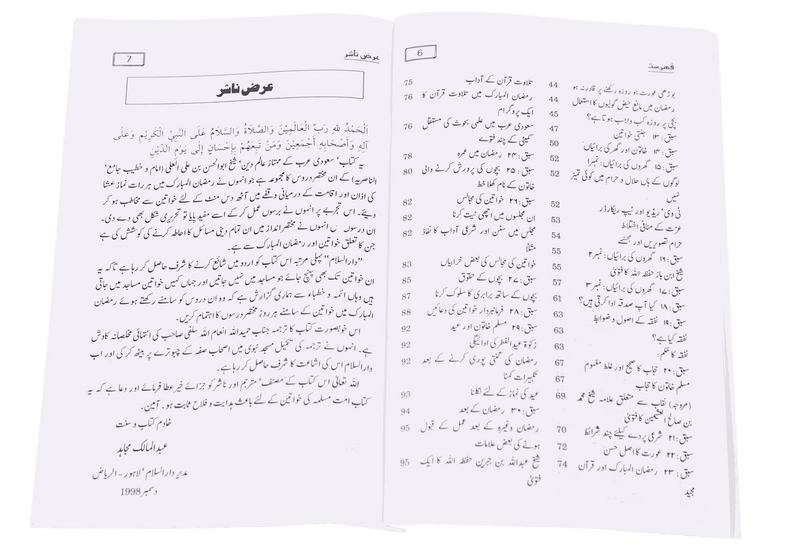 6
فہرست
بوڑھی عورت جو روزہ رکھنے پر قادر نہ ہو 44
رمضان میں مانع حیض گولیوں کا استعمال 44
بچی پر روزہ کب واجب ہوتا ہے؟ 45
سبق: ۱۳ جنتی خواتین 47
سبق: ۱۴ خاتون اور گھر کی برائیاں 50
سبق: ۱۵ گھروں کی برائیاں: نمبر۱ 52
لوگوں کے ہاں حلال و حرام میں کوئی تمیز
نہیں
ٹی وی' ریڈیو اور ٹیپ ریکارڈر 52
عزت کے منافی اختلاط 53
حرام تصویریں اور مجسمے 54
سبق: ۱۶ گھروں کی برائیاں: نمبر ۲ 55
شیخ ابن باز حفظہ اللہ کا فتویٰ 55
سبق: ۱۷ گھروں کی برائیاں: نمبر ۳ 57
سبق: ۱۸ کیا آپ صدقہ ادا کرتی ہیں؟ 61
سبق: ۱۹ نفقہ کے اصول و ضوابط 63
نفقہ کیا ہے؟ 63
نفقہ کا حکم: 63
سبق: ۲۰ حجاب کا صحیح اور غلط مفہوم 67
مسلم خاتون کا حجاب 67
(مروجہ) نقاب سے متعلق علامہ شیخ محمد 69
بن صالح العثیمین کا فتویٰ
سبق: ۲۱ شرعی پردے کیلئے چند شرائط 70
سبق: ۲۲ عورت کا اصل حسن 72
سبق: ۲۳ رمضان المبارک اور قرآن 74
مجید
تلاوت قرآن کے آداب 75
رمضان المبارک میں تلاوت قرآن کا 76
ایک پروگرام
سعودی عرب میں علمی بحوث کی مستقل 76
کمیٹی کے چند فتوے
سبق: ۲۴ رمضان میں عمرہ 78
سبق: ۲۵ بچوں کی پرورش کرنے والی 80
خاتون کے نام کھلا خط
سبق: ۲۶ خواتین کی مجالس 82
ان مجلسوں میں اچھی نیت کرنا 82
مجلس میں سنن اور شرعی آداب کا نفاذ 82
مثلاً
خواتین کی مجالس کی بعض خرابیاں 83
سبق: ۲۷ بچوں کے حقوق 85
بچوں کے ساتھ برابری کا سلوک کرنا 87
سبق: ۲۸ فرمانبردار خواتین کی دعائیں 88
سبق: ۲۹ مسلم خاتون اور عید 92
زکوٰۃ عیدالفطر کی ادائیگی 92
رمضان کی گنتی پوری کرنے کے بعد 92
تکبیرات کہنا
عید کی نماز کے لئے نکلنا 93
سبق: ۳۰ رمضان کے بعد 94
رمضان وغیرہ کے بعد عمل کے قبول 95
ہونے کی بعض علامات
شیخ عبداللہ بن جبرین حفظہ اللہ کا ایک 95
فتویٰ
عرض ناشر
7
عرض ناشر
اَلْحَمْدُ للهِ رَبِّ الْعَالَمِيْنَ وَالصَّلاَةُ وَالسَّلاَمُ عَلَى النَّبِيِّ الْكَرِيْمِ وَعَلَى
آلِهِ وَأَصْحَابِهِ أَجْمَعِيْنَ وَمَنْ تَبِعَهُمْ بِإِحْسَانٍ إِلَى يَوْمِ الدِّيْنِ
یہ کتاب' سعودی عرب کے ممتاز عالم دین' شیخ ابوالحسن بن علی العلی (امام و خطیب جامع'
الناصریہ) کے ان مختصر دروس کا مجموعہ ہے جو انہوں نے رمضان المبارک میں ہر رات نماز عشا
کی اذان اور اقامت کے درمیانی وقفے میں آٹھ دس منٹ کے لئے خواتین سے مخاطب ہو کر
دیئے۔ اس تجربے پر انہوں نے برسوں عمل کر کے اسے مفید پایا تو تحریری شکل بھی دے دی۔
ان دروس میں انہوں نے مختصر انداز میں ان تمام دینی مسائل کا احاطہ کرنے کی کوشش کی ہے
جن کا تعلق خواتین اور رمضان المبارک سے ہے۔
"دارالسلام" پہلی مرتبہ اس کتاب کو اردو میں شائع کرنے کا شرف حاصل کر رہا ہے تاکہ یہ
ان خواتین تک بھی پہنچ جائے جو مساجد میں نہیں جاتیں اور جہاں کہیں خواتین مساجد میں جاتی
ہیں وہاں ائمہ و خطباء سے ہماری گزارش ہے کہ وہ ان دروس کو سامنے رکھتے ہوئے رمضان
المبارک میں خواتین کے سامنے ہر روز مختصر دروس کا اہتمام کریں۔
اس خوبصورت کتاب کا ترجمہ جناب حمید اللہ انعام اللہ سلفی صاحب کی انتہائی مخلصانہ کاوش
ہے۔ انہوں نے ترجمہ کی تکمیل مسجد نبوی میں اصحاب صفہ کے چبوترے پر بیٹھ کر کی اور اب
دارالسلام اس کی اشاعت کا شرف حاصل کر رہا ہے۔
اللہ تعالیٰ اس کتاب کے مصنف' مترجم اور ناشر کو جزائے خیر عطا فرمائے اور دعا ہے کہ یہ
کتاب امت مسلمہ کی خواتین کے لئے باعث ہدایت و فلاح ثابت ہو۔ آمین۔
خادم کتاب و سنت
عبدالمالک مجاہد
مدیر دارالسلام' لاہور - الریاض
دسمبر 1998